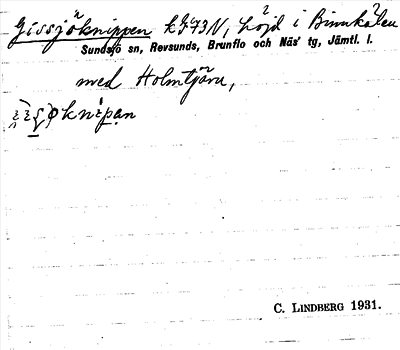 Gissjöknippen k I 73 N, höjd i Binnkälen
Sundsjö sn, Revsunds, Brunflo och Näs' tg, Jämtl. l.
med Holmtjärn,
knipan
C. LINDBERG 1931.